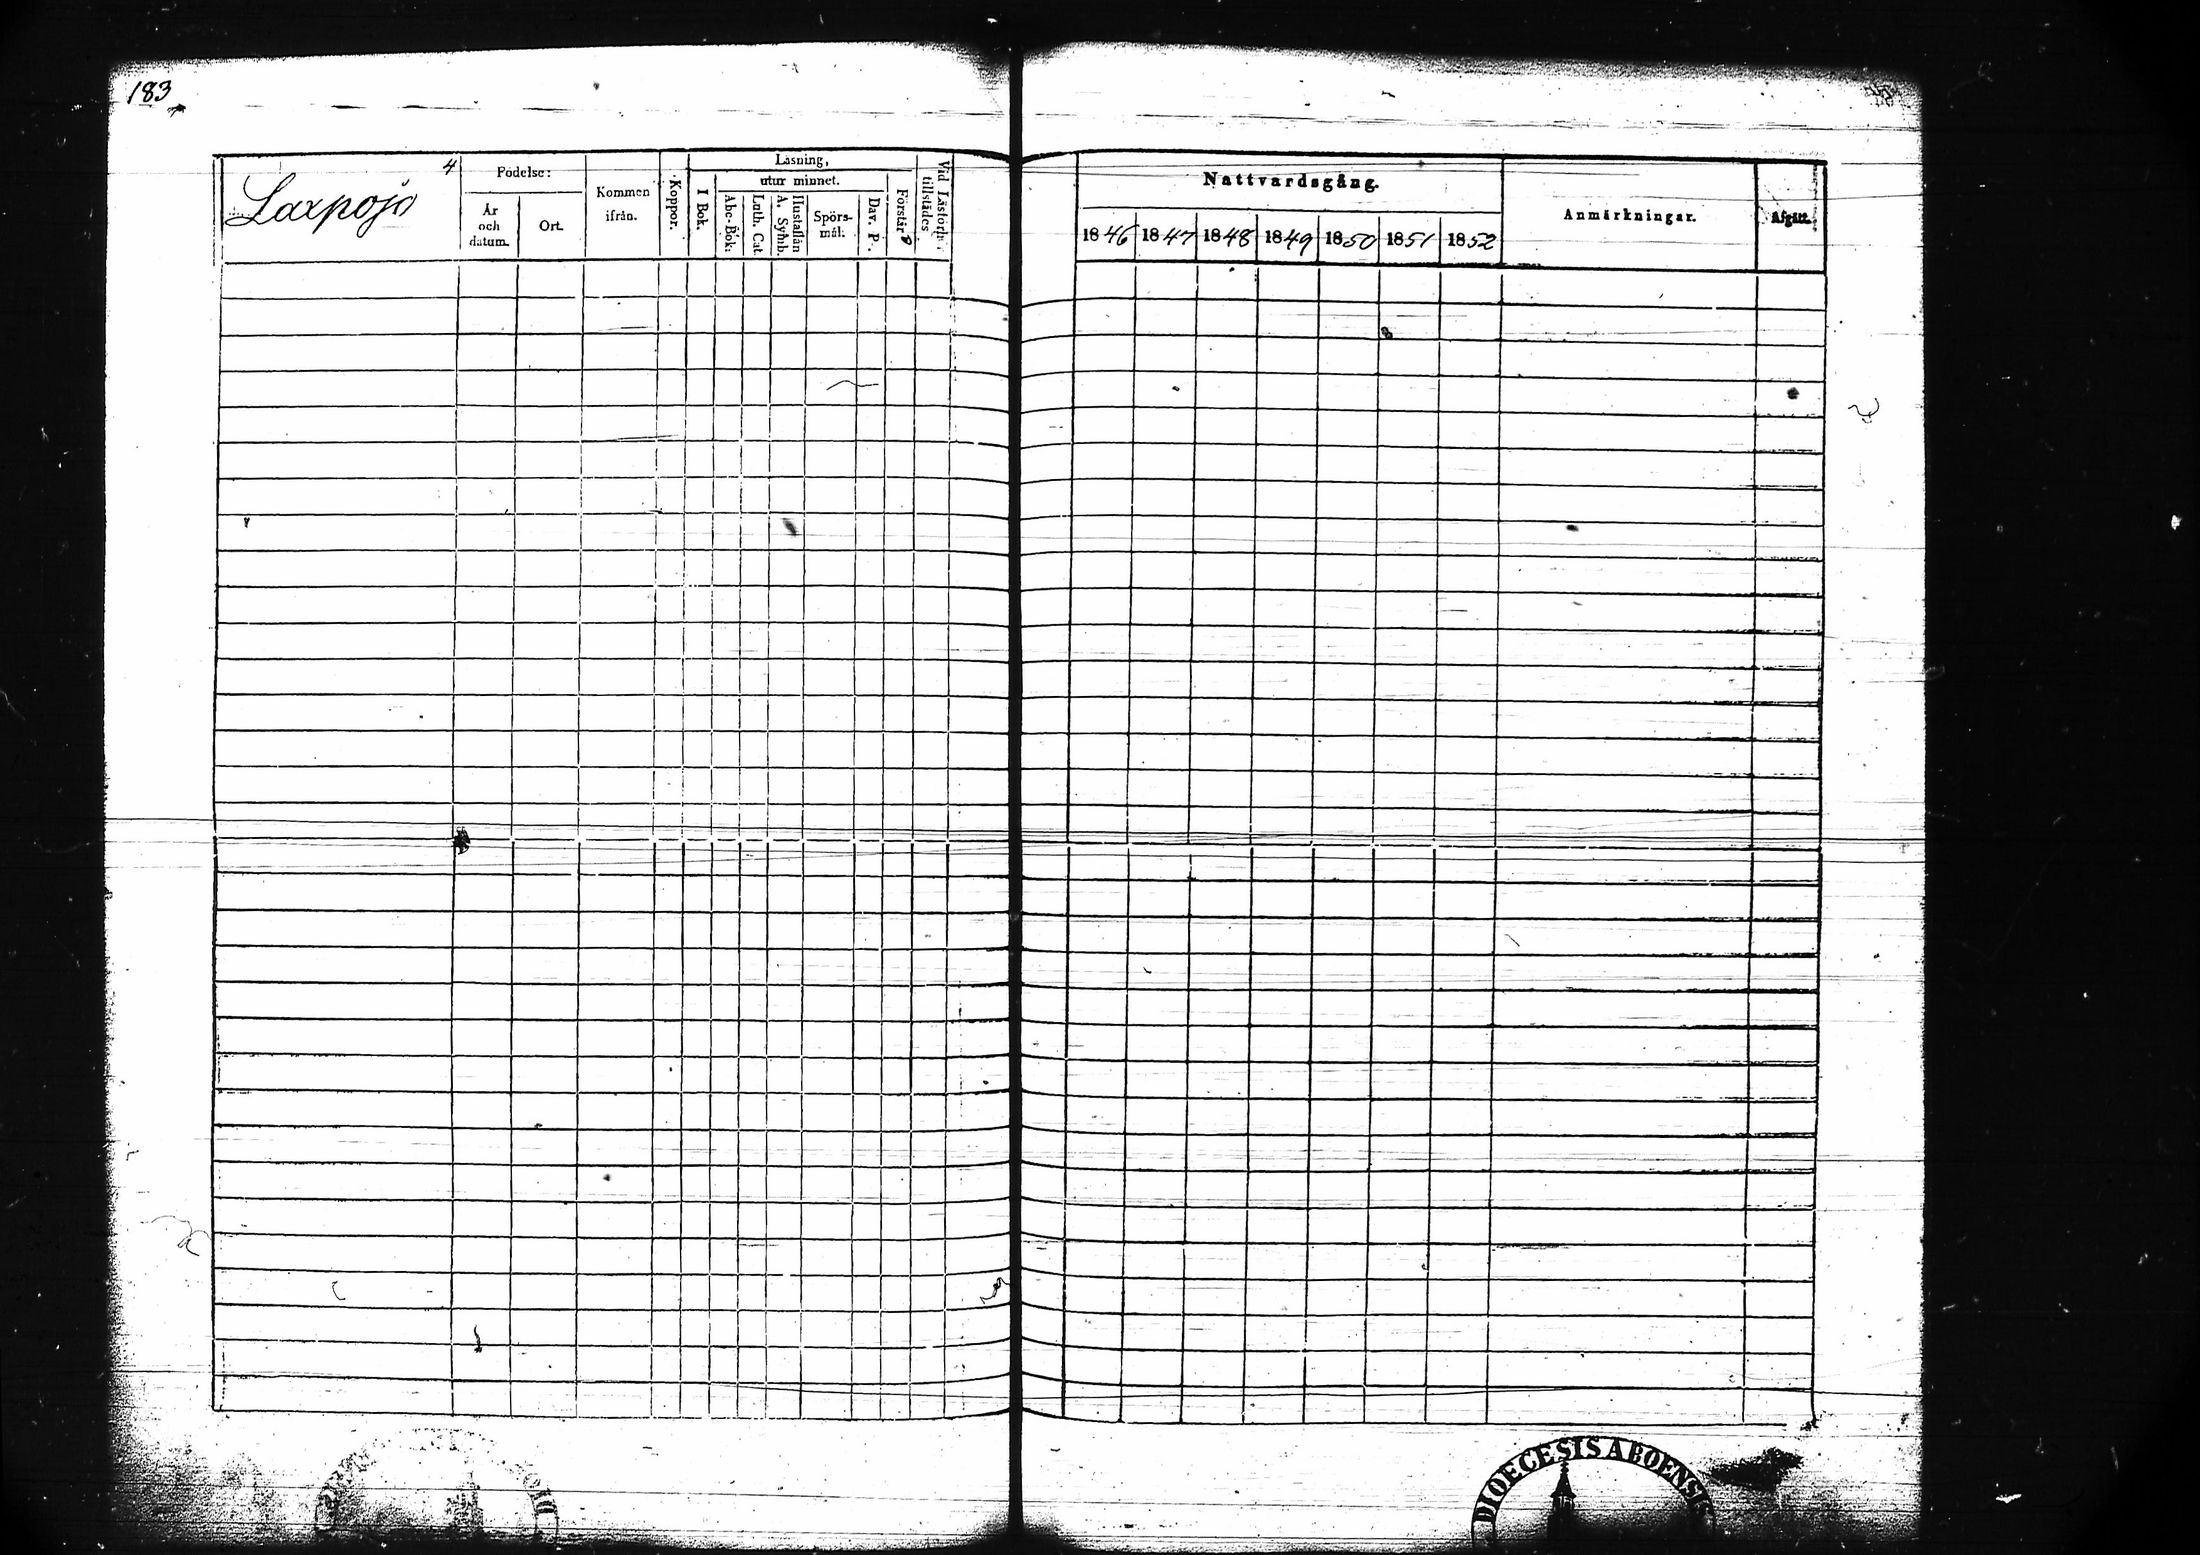 183
Laxpojo 4
Födelse:
År och datum.
Ort.
Kommen ifrån.
Koppor.
Läsning,
I Bok.
utur minnet.
Abc-Bok.
Luth. Cat.
Hustaflan A. Symb.
Spörs-mål.
Dav. P.
Förstår
Vid Läsförh. tillstädes.
Nattvardsgång.
1846 1847 1848 1849 1850 1851 1852
Anmärkningar.
Afgått.
DIOECESIS ABOENSIS